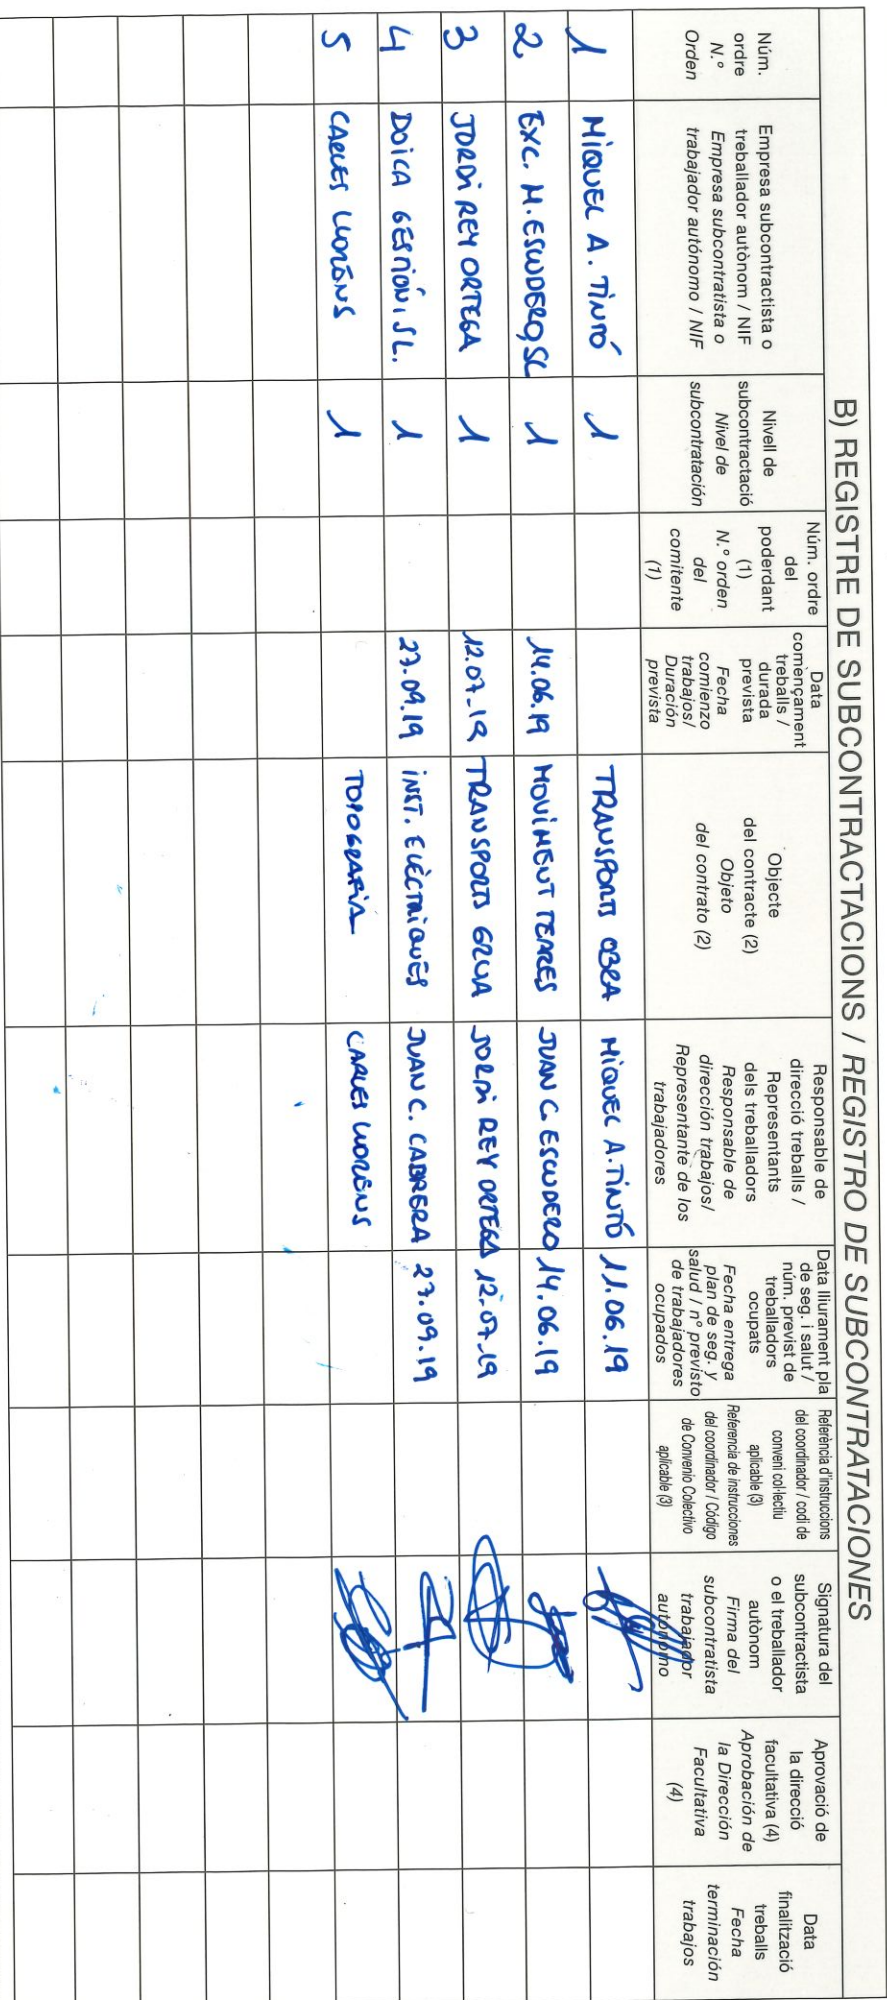 B) REGISTRE DE SUBCONTRACTACIONS / REGISTRO DE SUBCONTRATACIONES
Núm.
ordre
N.º
Orden
Empresa subcontractista o
treballador autònom / NIF
Empresa subcontratista o
trabajador autónomo / NIF
Nivell de
subcontractació
Nivel de
subcontratación
Núm. ordre
del
poderdant
(1)
N.º orden
del
comitente
(1)
Data
començament
treballs /
durada
prevista
Fecha
comienzo
trabajos/
Duración
prevista
Objecte
del contracte (2)
Objeto
del contrato (2)
Responsable de
direcció treballs /
Representants
dels treballadors
Responsable de
dirección trabajos/
Representante de los
trabajadores
Data lliurament pla
de seg. i salut /
núm. previst de
treballadors
ocupats
Fecha entrega
plan de seg. y
salud / nº previsto
de trabajadores
ocupados
Referència d'instruccions
del coordinador / codi de
conveni col·lectiu
aplicable (3)
Referencia de instrucciones
del coordinador / Código
de Convenio Colectivo
aplicable (3)
Signatura del
subcontractista
o el treballador
autònom
Firma del
subcontratista
trabajador
autónomo
Aprovació de
la direcció
facultativa (4)
Aprobación de
la Dirección
Facultativa
(4)
Data
finalització
treballs
Fecha
terminación
trabajos
1 MIQUEL A. TINTÓ 1 TRANSPORTS OBRA MIQUEL A. TINTÓ 11.06.19
2 EXC. M. ESCUDERO, SL 1 14.06.19 MOVIMENT TERRES JUAN C. ESCUDERO 14.06.19
3 JORDI REY ORTEGA 1 12.07.19 TRANSPORTS GRUA JORDI REY ORTEGA 12.07.19
4 DOICA GESTIÓN, S.L. 1 27.09.19 INST. ELÈCTRIQUES JUAN C. CABRERA 27.09.19
5 CARLES LLORENS 1 TOPOGRAFIA CARLES LLORENS